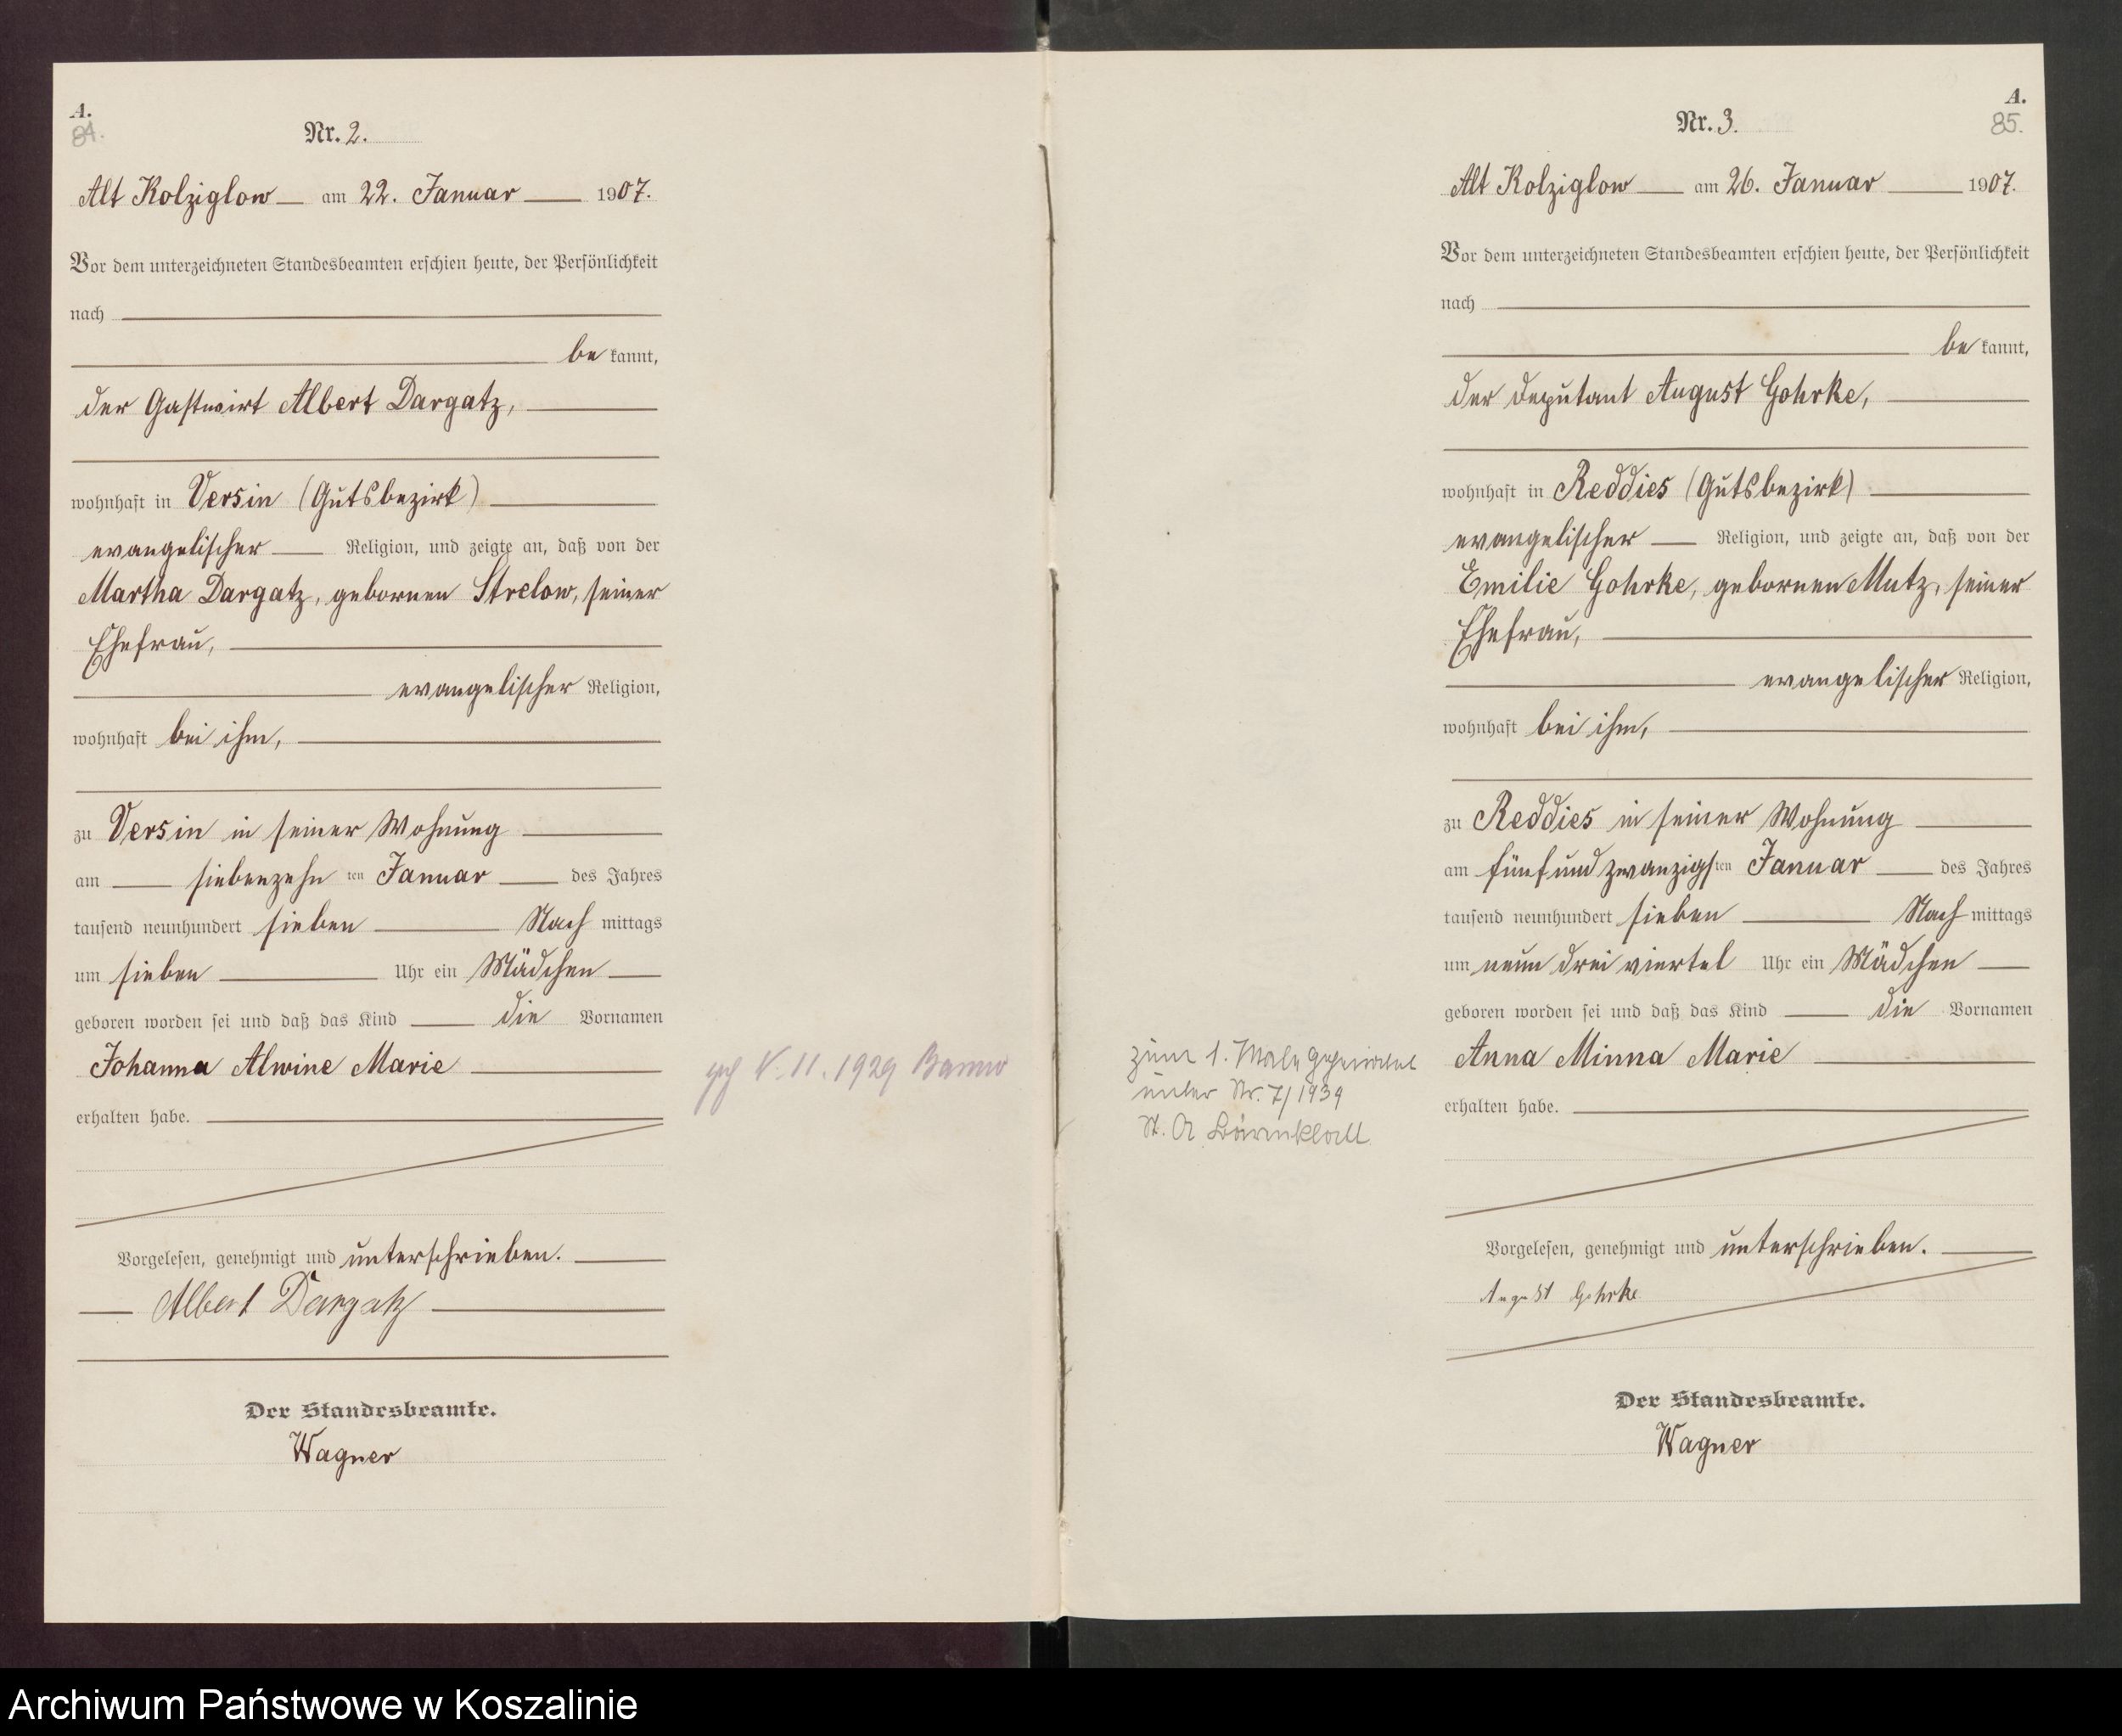 A.
84.
Nr. 2.
Alt Kolziglow am 22. Januar 1907.
Vor dem unterzeichneten Standesbeamten erschien heute, der Persönlichkeit
nach
be kannt,
der Gastwirt Albert Dargatz,
wohnhaft in Versin (Gutsbezirk)
evangelischer Religion, und zeigte an, daß von der
Martha Dargatz, gebornen Strelow, seiner
Ehefrau,
evangelischer Religion,
wohnhaft bei ihm,
zu Versin in seiner Wohnung
am siebenzehn ten Januar des Jahres
tausend neunhundert sieben Nach mittags
um sieben Uhr ein Mädchen
geboren worden sei und daß das Kind die Vornamen
Johanna Alwine Marie
erhalten habe.
Vorgelesen, genehmigt und unterschrieben.
Albert Dargatz
Der Standesbeamte.
Wagner
11. 1929
A.
85.
Nr. 3.
Alt Kolziglow am 26. Januar 1907.
Vor dem unterzeichneten Standesbeamten erschien heute, der Persönlichkeit
nach
be kannt,
der Deputant August Gohrke,
wohnhaft in Reddies (Gutsbezirk)
evangelischer Religion, und zeigte an, daß von der
Emilie Gohrke, gebornen Mutz, seiner
Ehefrau,
evangelischer Religion,
wohnhaft bei ihm,
zu Reddies in seiner Wohnung
am fünf und zwanzigs ten Januar des Jahres
tausend neunhundert sieben Nach mittags
um neun drei viertel Uhr ein Mädchen
geboren worden sei und daß das Kind die Vornamen
Anna Minna Marie
erhalten habe.
Vorgelesen, genehmigt und unterschrieben.
August Gohrke
Der Standesbeamte.
Wagner
zum 1. Male geheiratet
unter Nr. 7/1939
St. A.
Archiwum Państwowe w Koszalinie